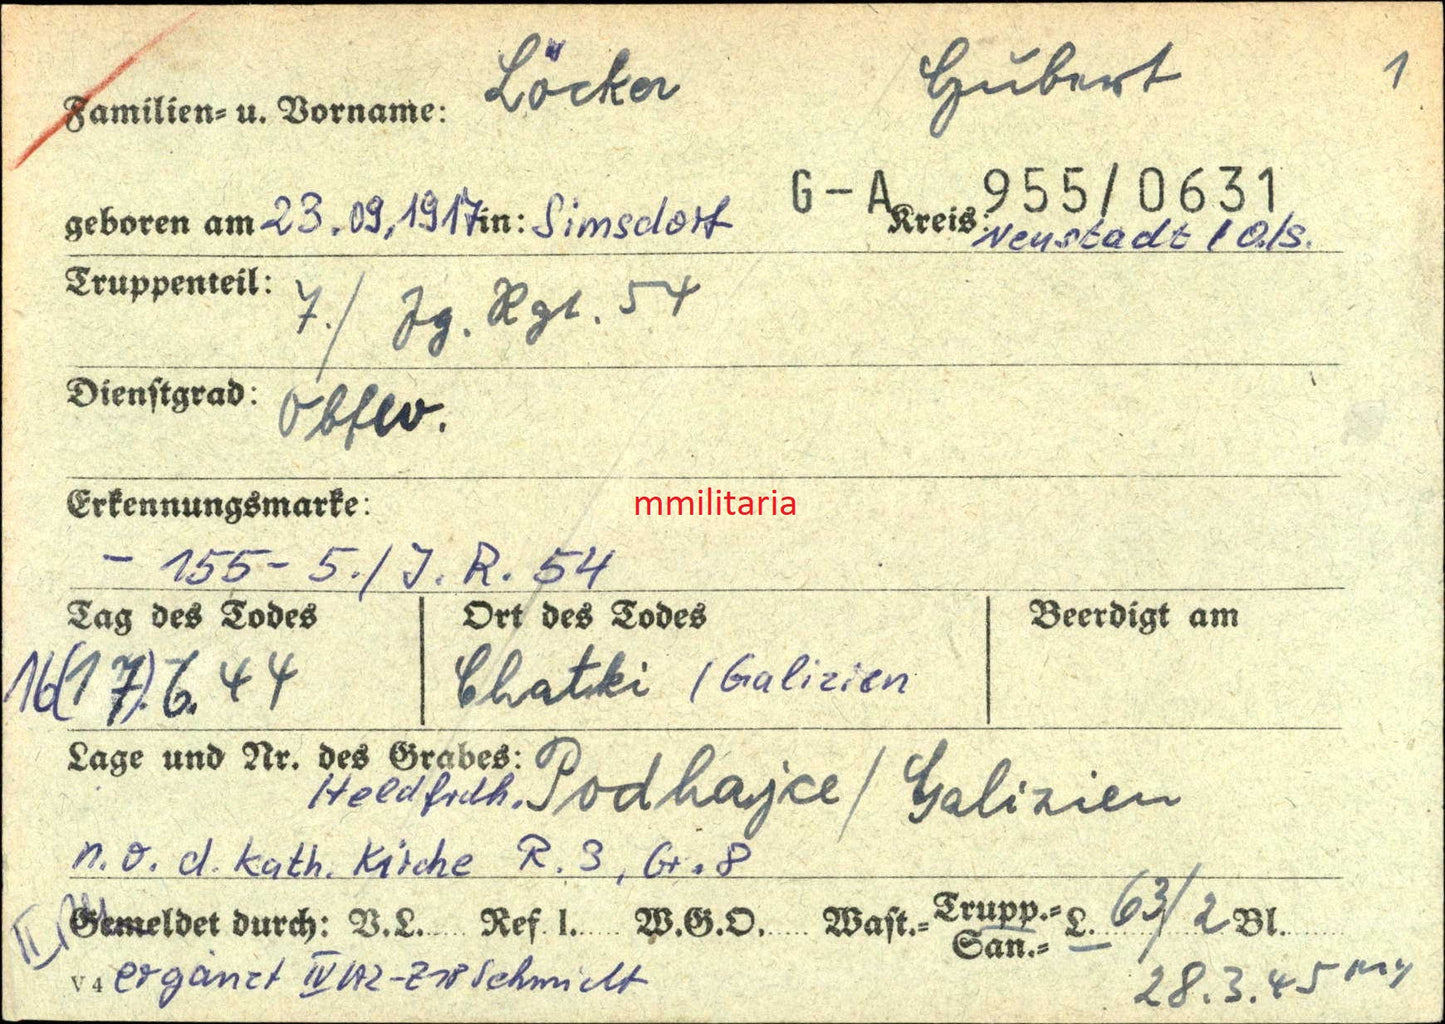 Familien- u. Vorname: Löcker Hubert 1
G-A 955/0631
geboren am 23.09.1917 in: Simsdorf Kreis: Neustadt / O/S.
Truppenteil: 7./ Jg. Rgt. 54
Dienstgrad: Obfw.
Erkennungsmarke:
mmilitaria
- 155 - 5./ J. R. 54
Tag des Todes Ort des Todes Beerdigt am
16(17).6.44 Chatki / Galizien
Lage und Nr. des Grabes: Podhajce / Galizien
Heldfrdh.
n. o. d. kath. Kirche R. 3, Gr. 8
Gemeldet durch: V.L..... Ref l..... W.G.O..... Wast.- Trupp.- San.- L. 63/2 Bl.
V 4 ergänzt Schmidt
28.3.45